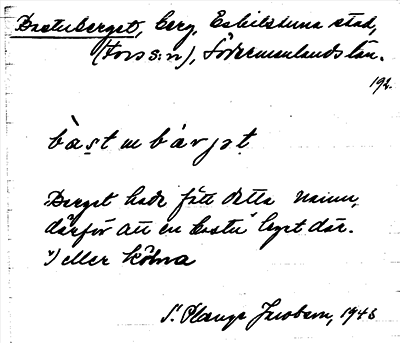 Bastuberget, berg, Eskilstuna stad,
(Fors s:n), Södermanlands län.
192.
bàstubárjət
Berget hade fått detta namn,
därför att en bastu¹⁾ legat där.
¹⁾ eller kölna
S. Plange Jacobson, 1946